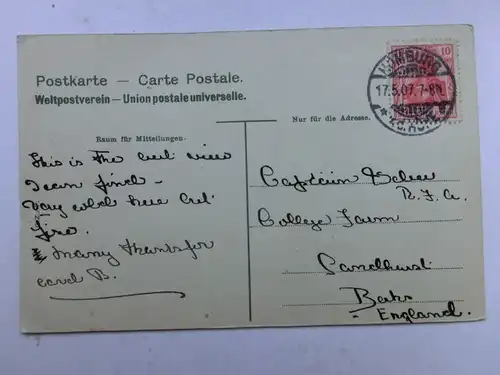 Postkarte — Carte Postale.
Weltpostverein — Union postale universelle.
Nur für die Adresse.
Raum für Mitteilungen.
HOMBURG
17.5.07. 7-8N
10
This is the view
I can find -
Very cold here but
fine.
Many thanks for
card B.
Captain
R.F.A.
College Town
Sandhurst
Berks
England.